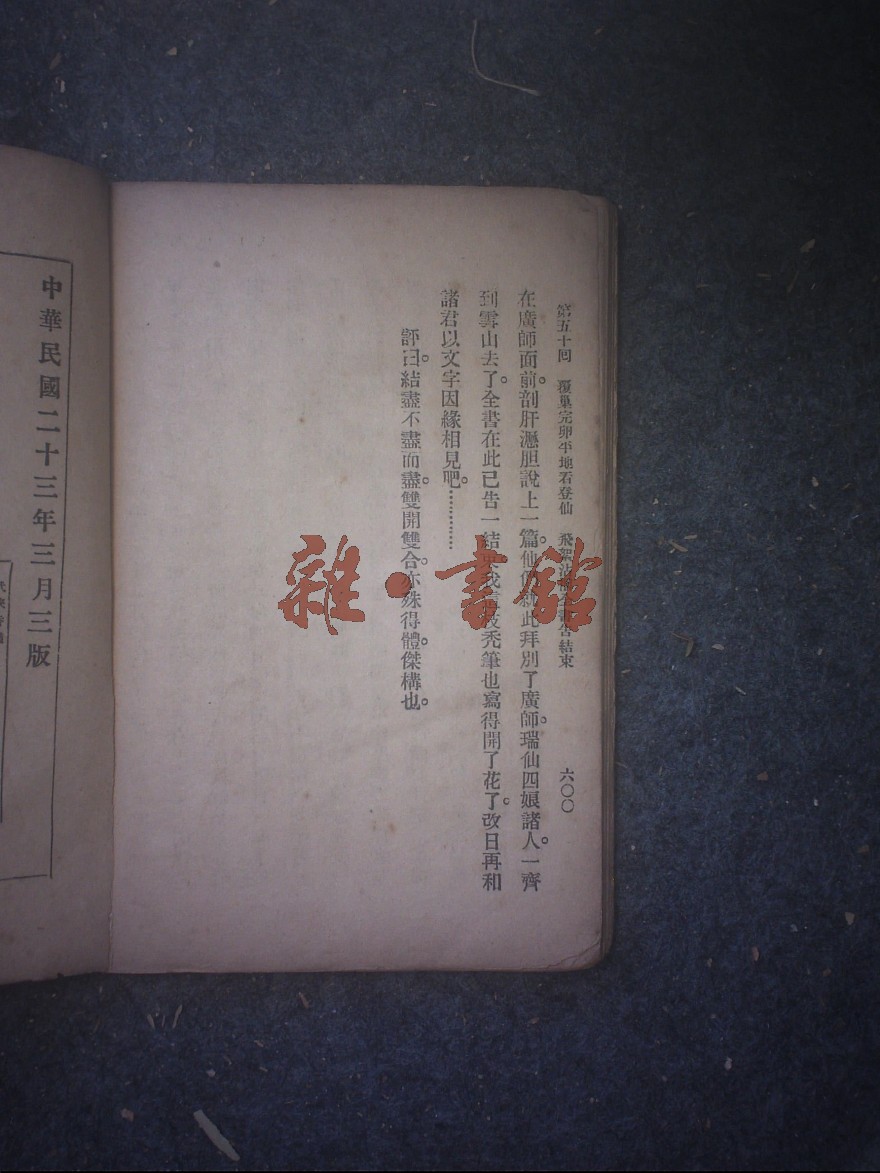 第五十回 覆巢完卵平地石登仙 飛 告結束 六〇〇
在廣師面前。剖肝瀝胆說上一篇。仙 此拜別了廣師。瑞仙四娘諸人。一齊
到雲山去了。全書在此已告一結 我這枝禿筆也寫得開了花了。改日再和
諸君以文字因緣相見吧。…………
評曰。結盡不盡而盡。雙開雙合。亦殊得體。傑構也。
中華民國二十三年三月三版
雜·書館